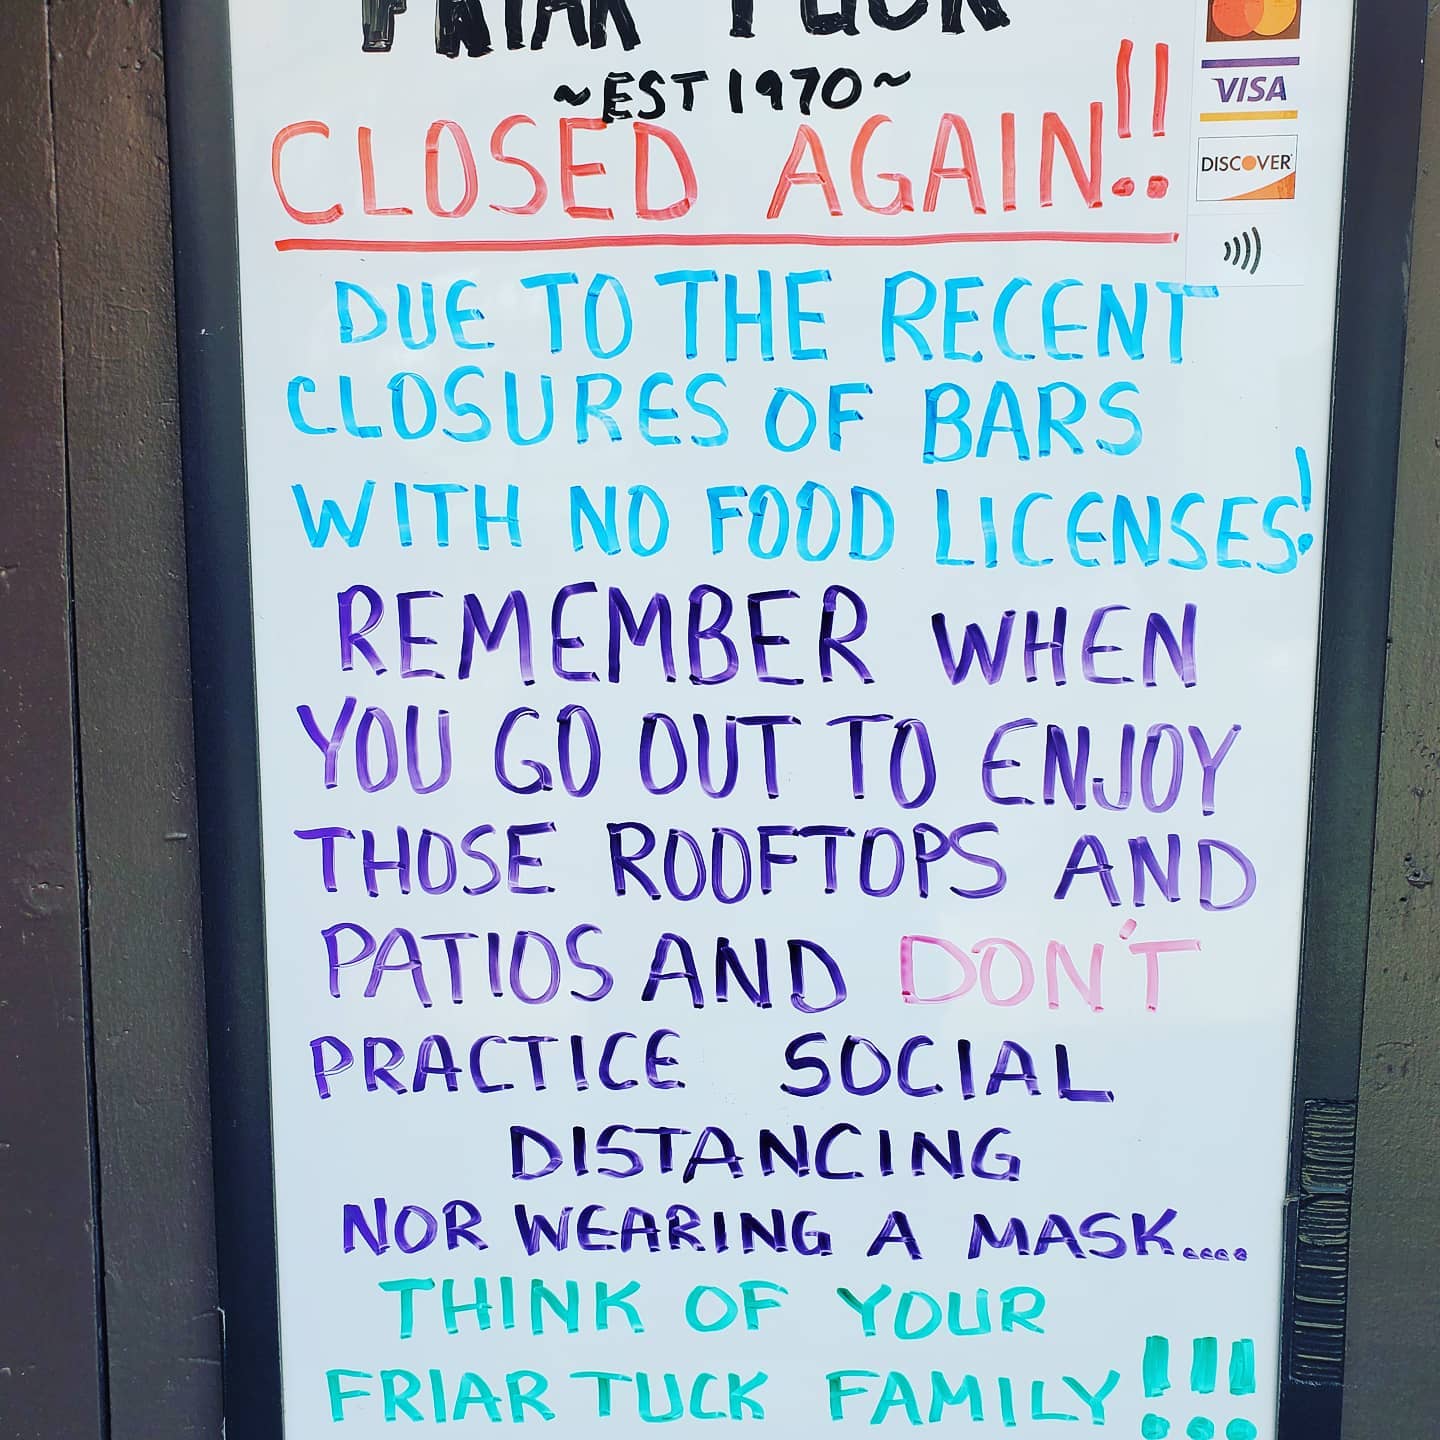 FRIAR TUCK
~EST 1970~
CLOSED AGAIN!!
VISA
DISCOVER
DUE TO THE RECENT
CLOSURES OF BARS
WITH NO FOOD LICENSES!
REMEMBER WHEN
YOU GO OUT TO ENJOY
THOSE ROOFTOPS AND
PATIOS AND DON'T
PRACTICE SOCIAL
DISTANCING
NOR WEARING A MASK....
THINK OF YOUR
FRIAR TUCK FAMILY!!!